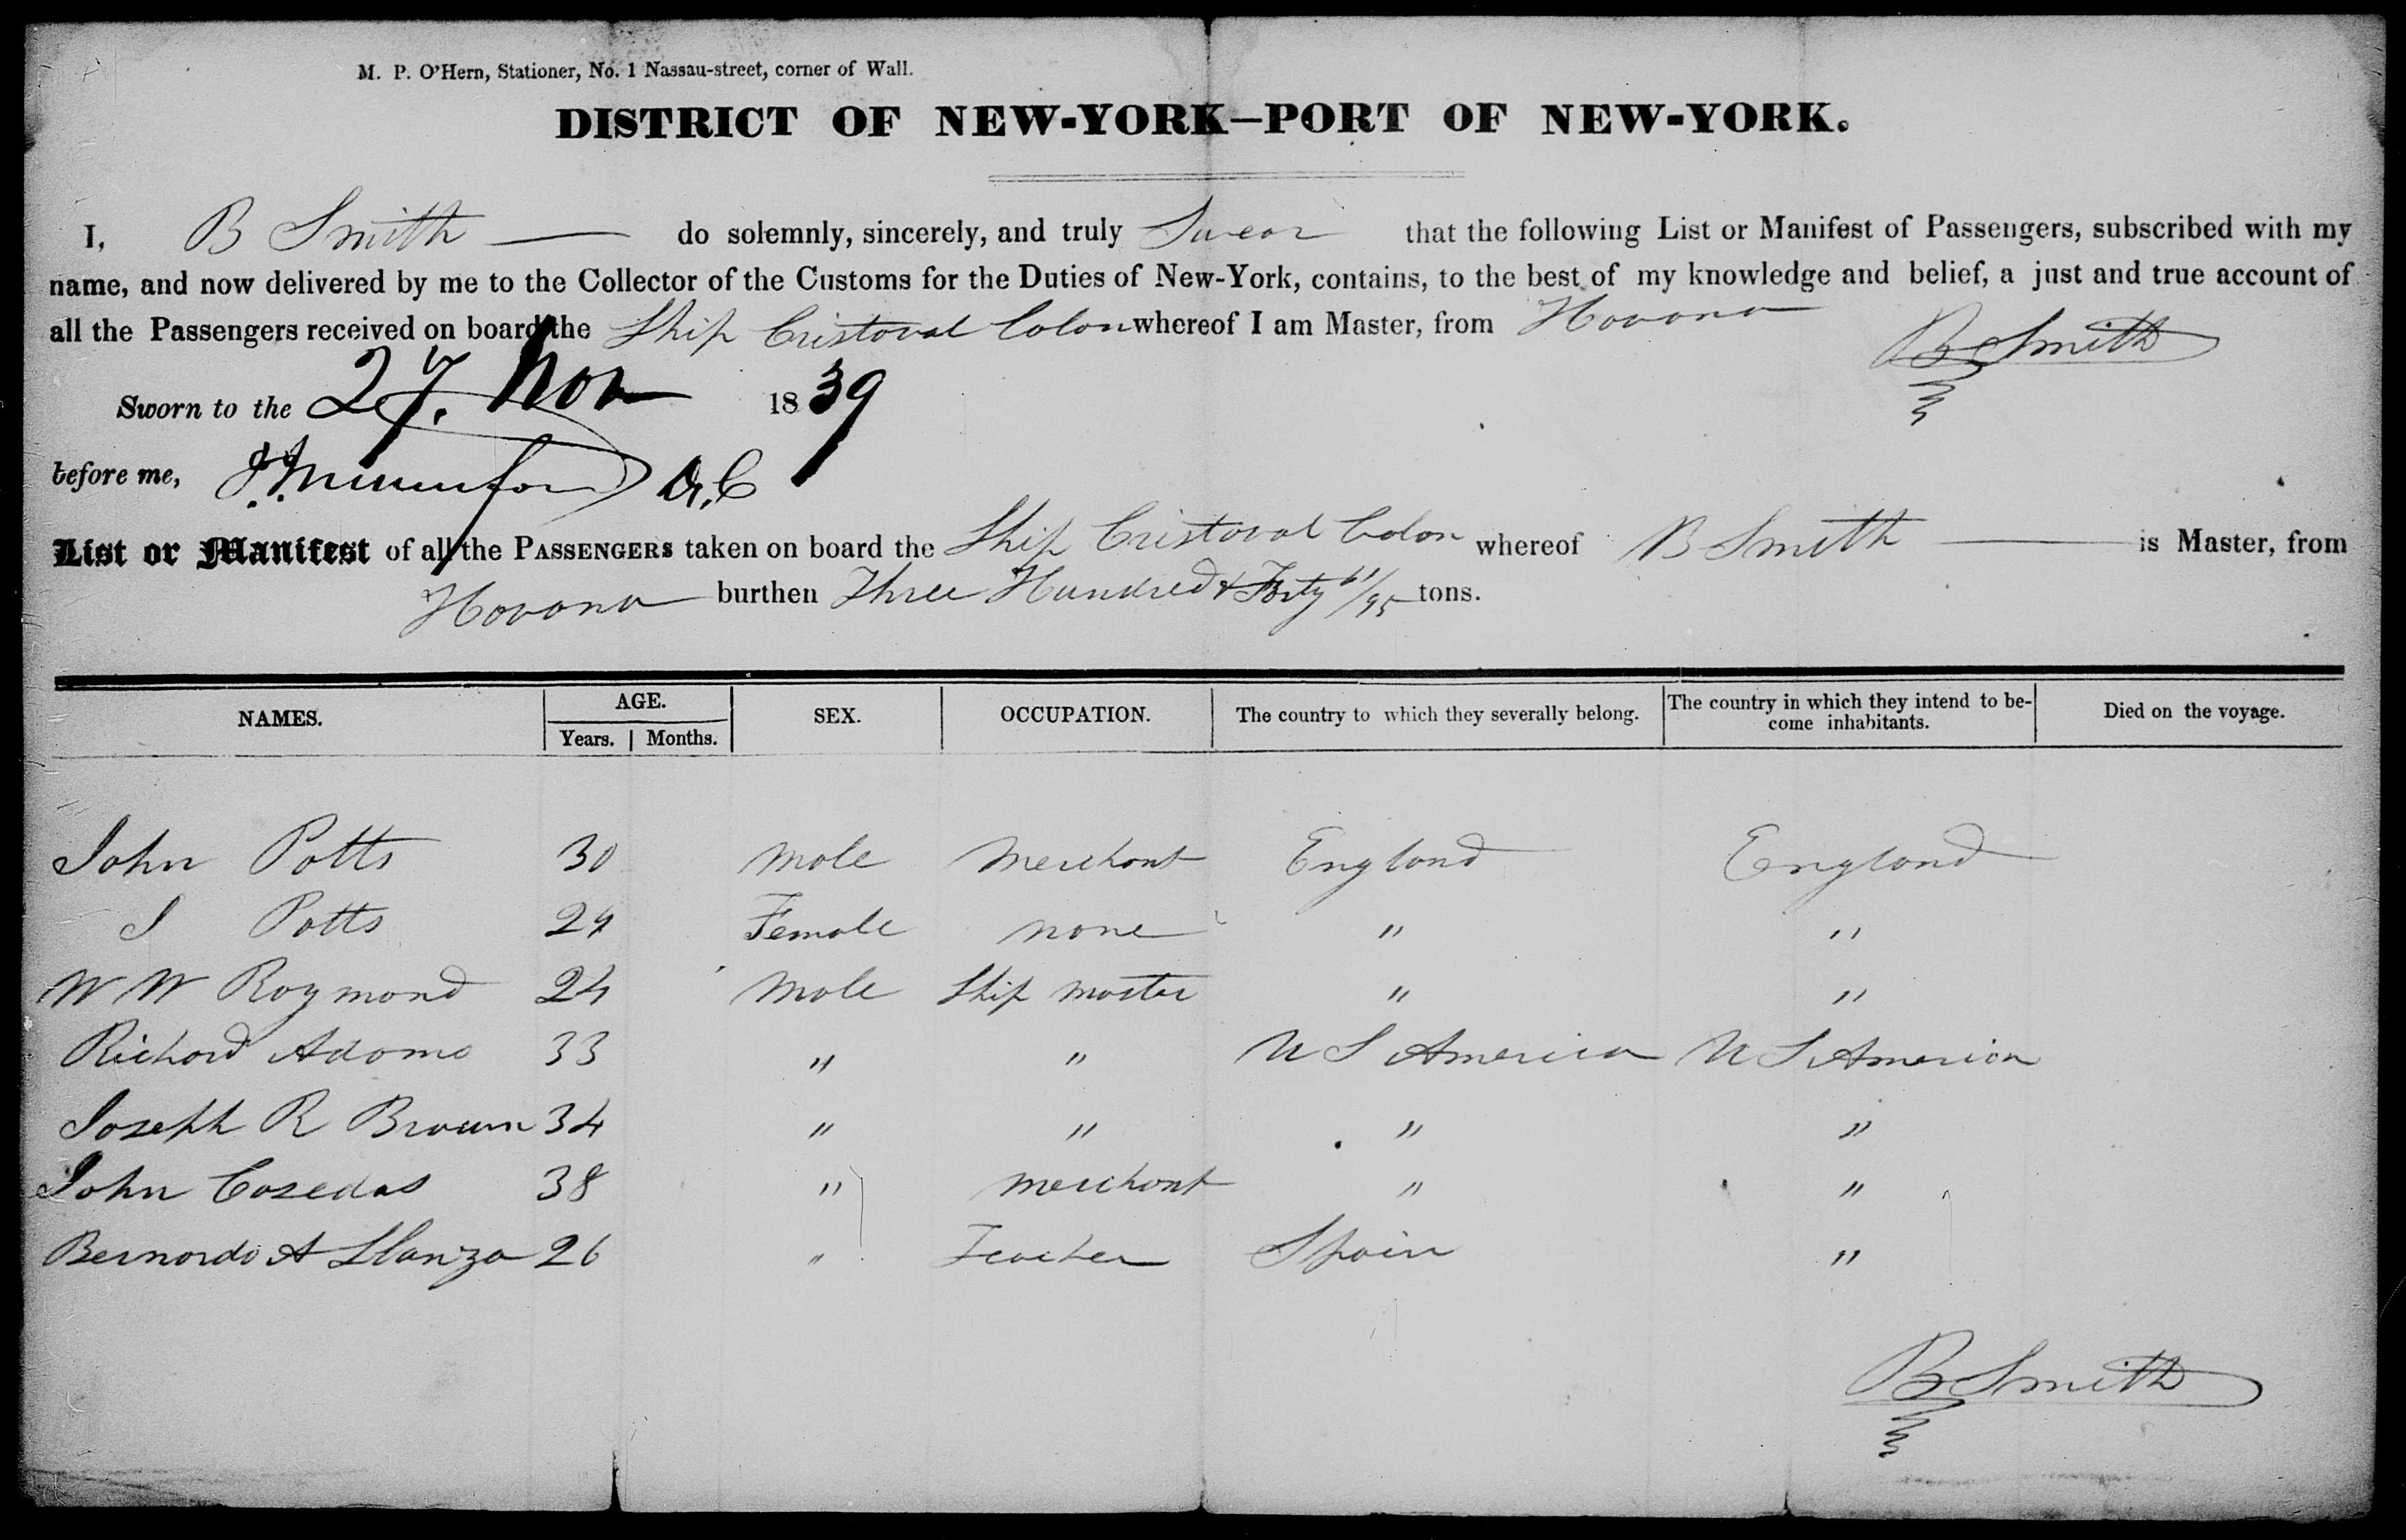 M. P. O'Hern, Stationer, No. 1 Nassau-street, corner of Wall.
DISTRICT OF NEW-YORK—PORT OF NEW-YORK.
I, B Smith — do solemnly, sincerely, and truly Swear that the following List or Manifest of Passengers, subscribed with my
name, and now delivered by me to the Collector of the Customs for the Duties of New-York, contains, to the best of my knowledge and belief, a just and true account of
all the Passengers received on board the Ship Cristoval Colon whereof I am Master, from Havana
B Smith
Sworn to the 27. Nov 1839
before me, D.C
List or Manifest of all the PASSENGERS taken on board the Ship Cristoval Colon whereof B Smith — is Master, from
Havana burthen Three Hundred & Forty 61/95 tons.
NAMES. AGE. SEX. OCCUPATION. The country to which they severally belong. The country in which they intend to be- Died on the voyage.
Years. Months. come inhabitants.
John Potts 30 Male Merchant England England
S Potts 24 Female none " "
W W Raymond 24 Male Ship master " "
Richard Adams 33 " " U S America U S America
Joseph R Brown 34 " " " "
John Casedas 38 " merchant " "
Bernardo A Llanza 26 " Teacher Spain "
B Smith